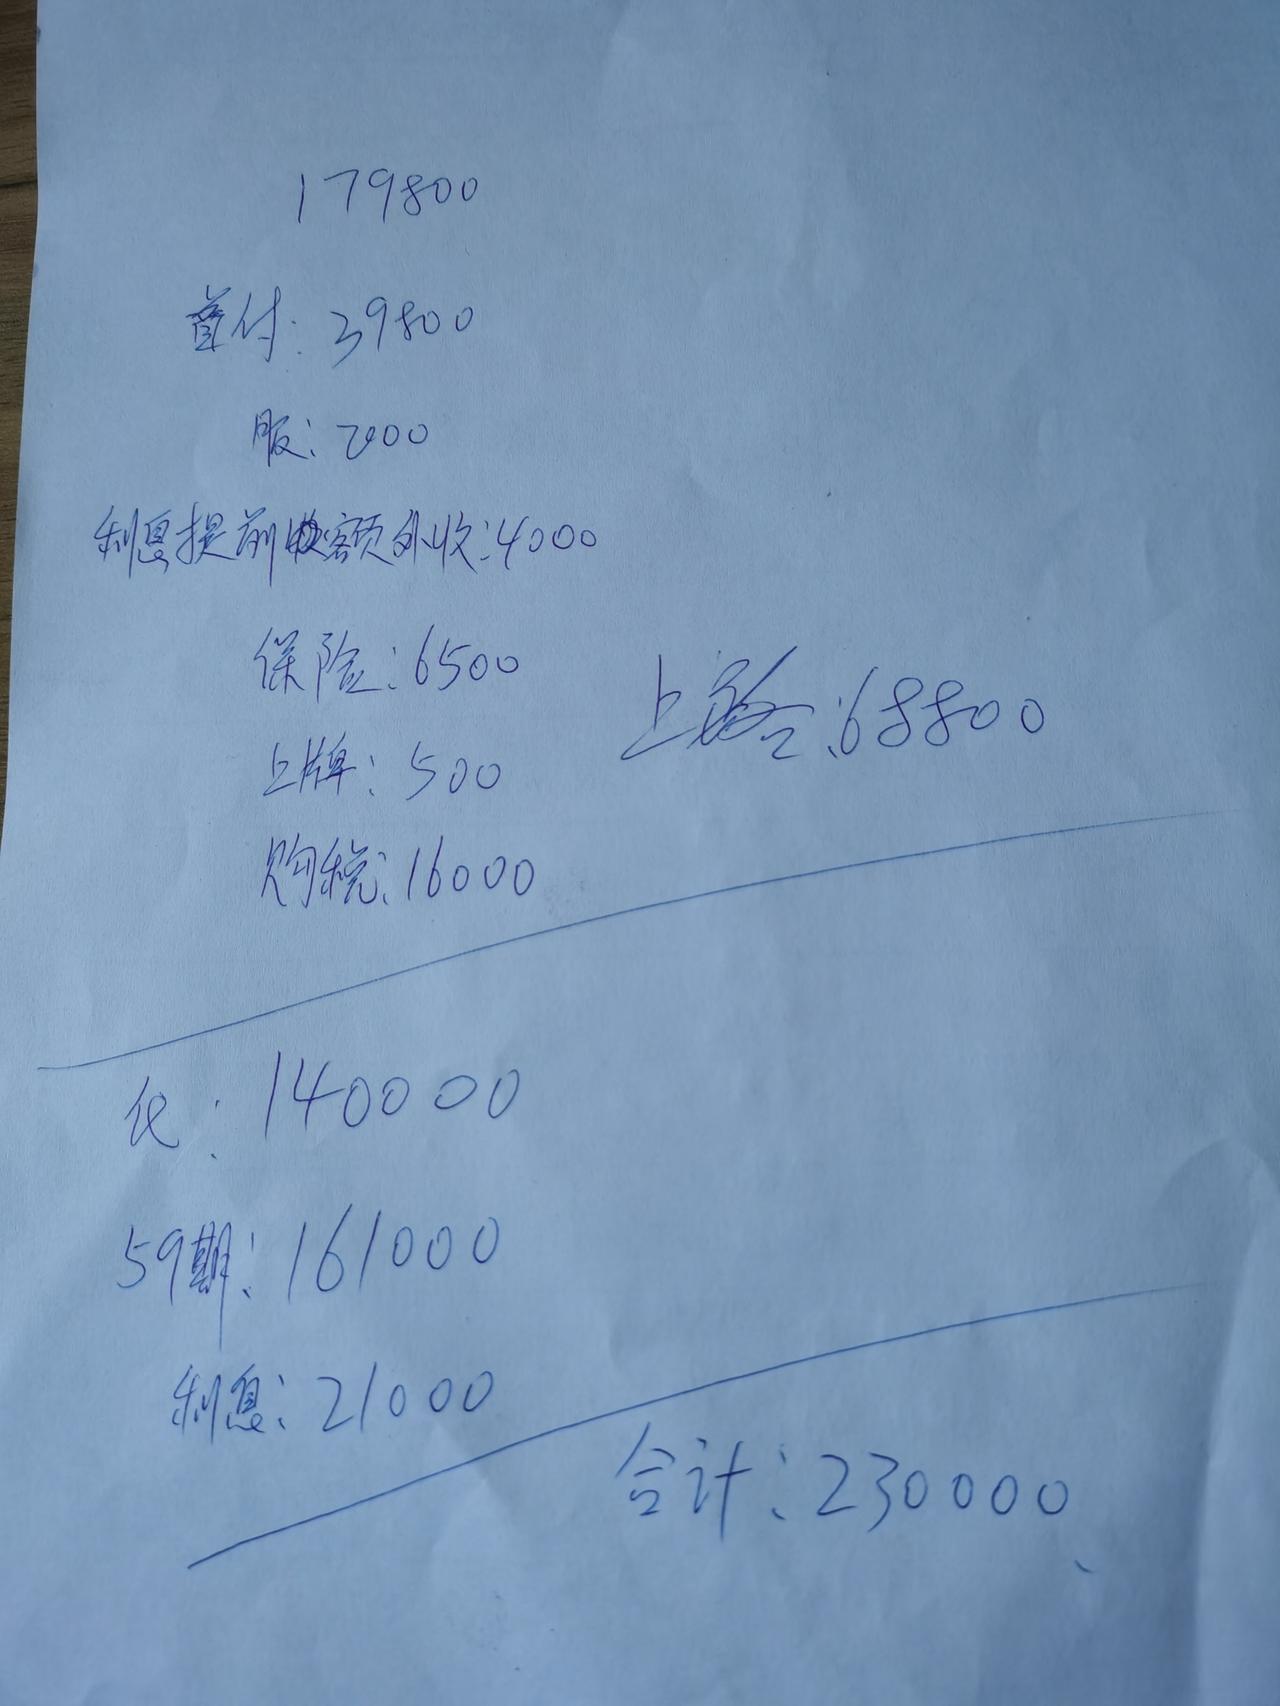 179800
首付:39800
服:2000
利息提前收额外收:4000
保险:6500
上路:68800
上牌:500
购税:16000
代:140000
59期:161000
利息:21000
合计:230000